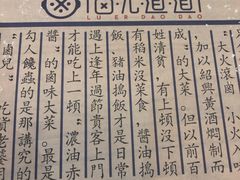 LU ER DAO DAO
大火滾鹵，小火入味
加以紹興黃酒燜制而
成的大菜。但以前百
姓清貧，有上頓沒下頓
有稻米沒菜食，醬油搗
飯，豬油搗飯才是日常
遇上逢年過節貴客上門
才能吃上一頓"濃油赤
醬"的鹵味大菜。最是
勾人饞蟲的是那講究的
"鹵兒"